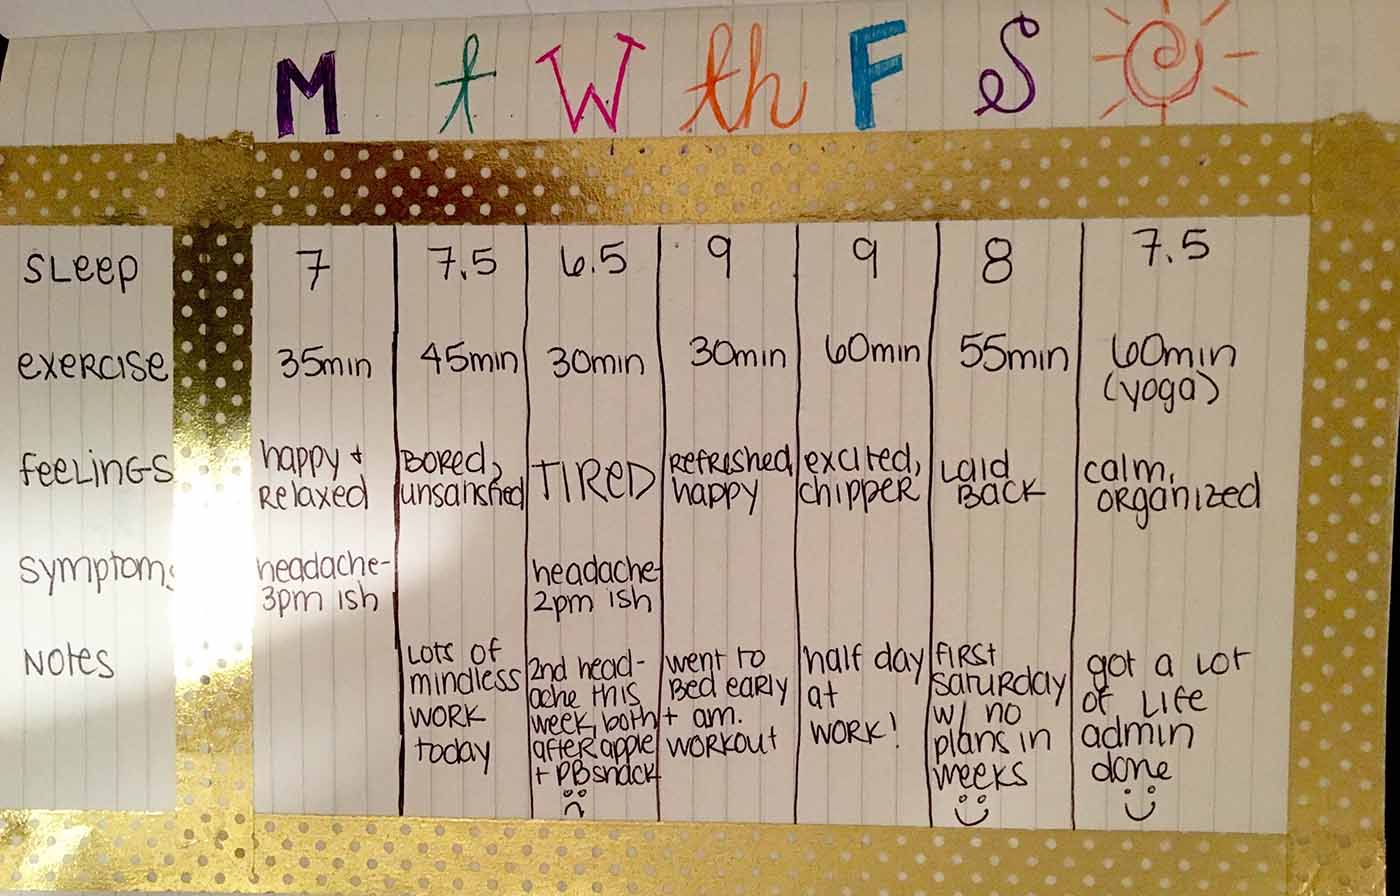 M t W th F S
SLeep 7 7.5 6.5 9 9 8 7.5
exercise 35min 45min 30min 30min 60min 55min 60min
(yoga)
feeLinGS
happy +
Relaxed
BoReD,
unsatisfied
TIReD
Refreshed
happy
excited,
chipper
Laid
Back
calm,
organized
symptoms
headache-
3pm ish
headache
2pm ish
Notes
Lots of
mindless
work
today
2nd head-
ache this
week, both
after apple
+ PB snack
went to
Bed early
+ am.
workout
half day
at
work!
first
saturday
w/ no
plans in
weeks
got a lot
of life
admin
done